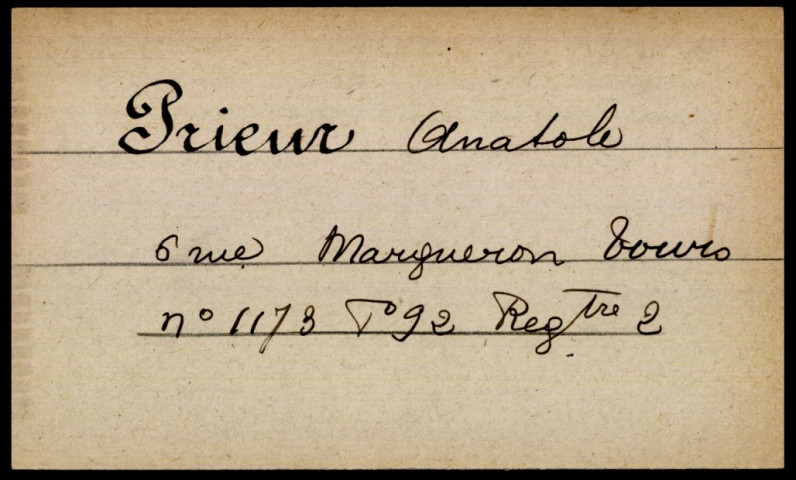 Prieur Anatole
6 rue Margueron Tours
n° 1173 F° 92 Reg^tre 2